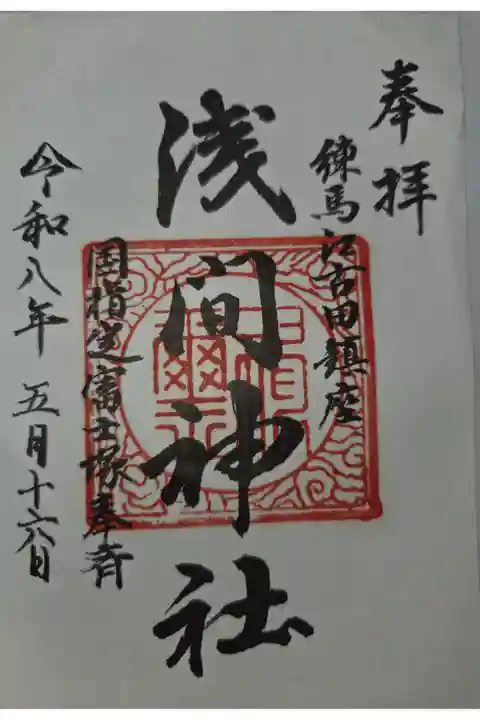 奉拝
練馬江古田鎮座
浅間神社
国指定富士塚奉斉
令和八年 五月十六日